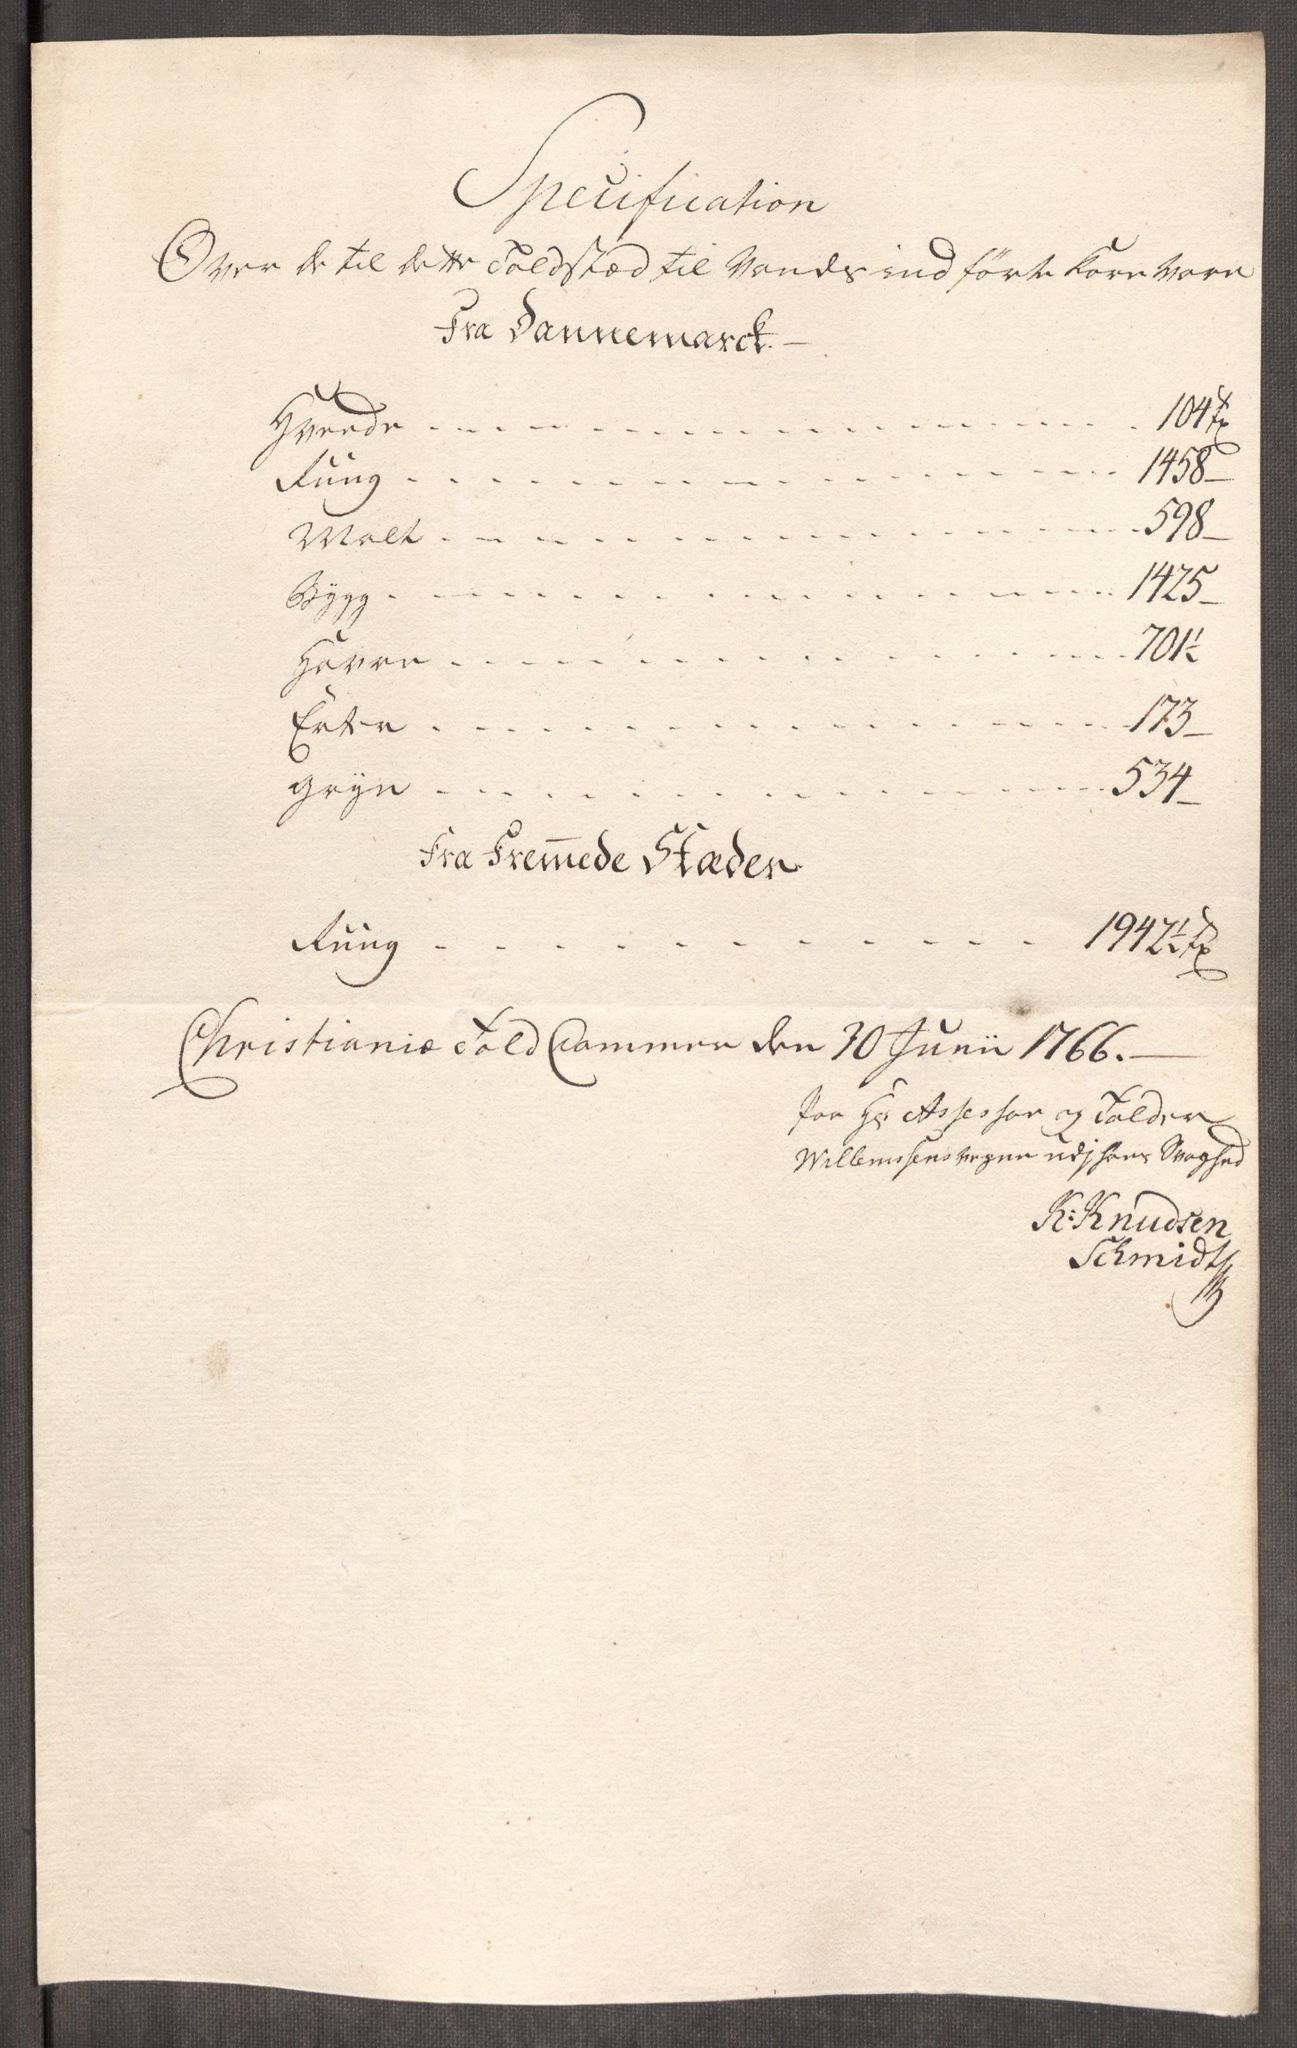 Specification
Over de til dette Toldstæd til Vands indførte Korn Vare
Fra Dannemarck. —
Hvede . . . . . . . . . . . . . . . . 104 Tr
Rüug . . . . . . . . . . . . . . . . 1458 —
Malt . . . . . . . . . . . . . . . . 598 —
Bÿgg . . . . . . . . . . . . . . . . 1425 —
Havre . . . . . . . . . . . . . . . . 701½
Erter . . . . . . . . . . . . . . . . 173 —
Grÿn . . . . . . . . . . . . . . . . 534 —
Fra Frem̅ede Stæder
Rüug . . . . . . . . . . . . 1947½ Tr
Christianiæ Told Cammer den 30 Junii 1766. —
paa Hr Assessor og Tolder
Willemssens vegne udj hans Svaghed
K: Knudsen
Schmidt